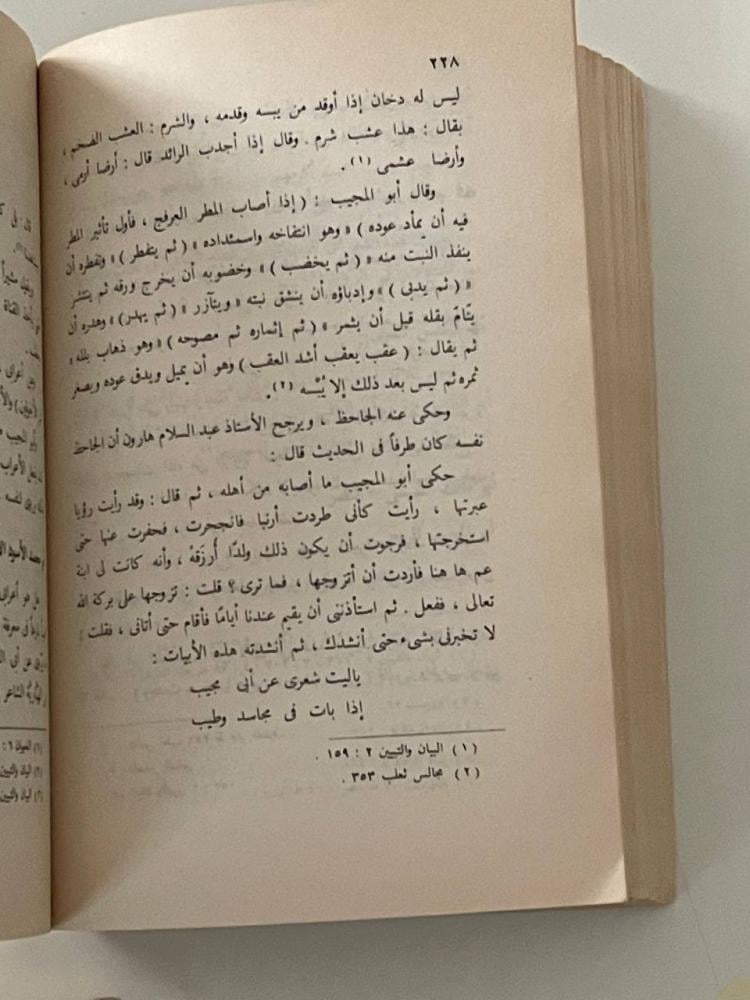 ٢٢٨
ليس له دخان إذا أوقد من يبسه وقدمه ، والشرم : العشب الضخم ،
يقال : هذا عشب شرم . وقال إذا أجدب الرائد قال : أرضا أرمى ،
وأرضا عشمى (١) .
وقال أبو المجيب : ( إذا أصاب المطر العرفج ، فأول تأثير المطر
فيه أن يمأد عوده ) « وهو انتفاخه واسمئداده « ( ثم يتفطر ) » وتفطره أن
ينفذ النبت منه « ( ثم يخضب ) » وخضوبه أن يخرج ورقه ثم ينتشر
« ( ثم يدبى ) » وإدباؤه أن ينشق نبته « ويتآزر « ( ثم يهدر ) » وهدره أن
يتامّ بقله قبل أن يثمر « ( ثم إثماره ثم مصوحه ) » وهو ذهاب بلله «
ثم يقال : ( عقب يعقب أشد العقب ) وهو أن يميل ويدق عوده ويصفر
ثمره ثم ليس بعد ذلك إلا يُبْسه (٢) .
وحكى عنه الجاحظ ، ويرجح الأستاذ عبد السلام هارون أن الجاحظ
نفسه كان طرفاً فى الحديث قال :
حكى أبو المجيب ما أصابه من أهله ، ثم قال : وقد رأيت رؤيا
عبرتها ، رأيت كأنى طردت أرنبا فانجحرت ، فحفرت عنها حتى
استخرجتها ، فرجوت أن يكون ذلك ولدًا أُرزَقهُ ، وأنه كانت لى ابنة
عم ها هنا فأردت أن أتزوجها ، فما ترى ؟ قلت : تزوجها على بركة الله
تعالى ، ففعل . ثم استأذننى أن يقيم عندنا أيامًا فأقام حتى أتانى ، فقلت :
لا تخبرنى بشىء حتى أنشدك ، ثم أنشدته هذه الأبيات :
ياليت شعرى عن أبى مجيب
إذا بات فى مجاسد وطيب
(١) البيان والتبيين ٢ : ١٥٩ .
(٢) مجالس ثعلب ٣٥٣ .